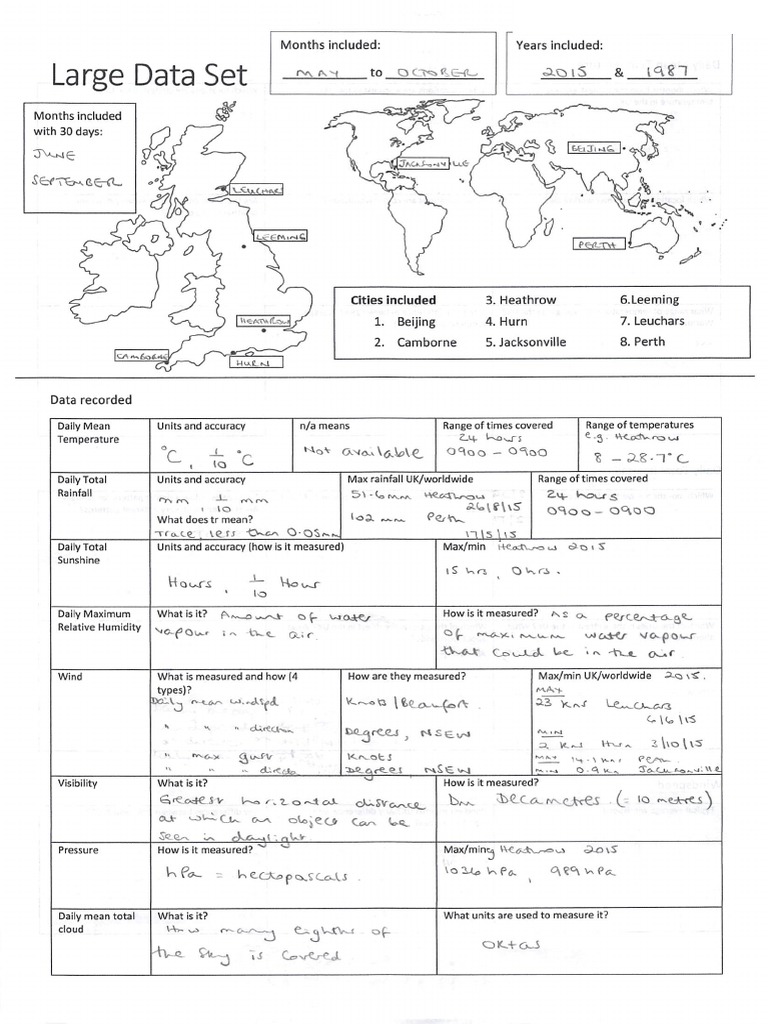 Large Data Set
Months included:
MAY to OCTOBER
Years included:
2015 & 1987
Months included
with 30 days:
JUNE
SEPTEMBER
LEUCHAR
LEEMING
HEATHROW
CAMBORNE
HURN
JACKSONVILLE
BEIJING
PERTH
Cities included
1. Beijing
2. Camborne
3. Heathrow
4. Hurn
5. Jacksonville
6.Leeming
7. Leuchars
8. Perth
Data recorded
Daily Mean
Temperature
Units and accuracy
°C , 1/10 °C
n/a means
Not available
Range of times covered
24 hours
0900 – 0900
Range of temperatures
e.g. Heathrow
8 – 28.7°C
Daily Total
Rainfall
Units and accuracy
mm , 1/10 mm
What does tr mean?
Trace, less than 0.05mm
Max rainfall UK/worldwide
51.6mm Heathrow
26/8/15
102 mm Perth
17/5/15
Range of times covered
24 hours
0900 – 0900
Daily Total
Sunshine
Units and accuracy (how is it measured)
Hours , 1/10 Hour
Max/min Heathrow 2015
15 hrs , 0 hrs.
Daily Maximum
Relative Humidity
What is it? Amount of water
vapour in the air.
How is it measured? As a percentage
of maximum water vapour
that could be in the air
Wind
What is measured and how (4
types)?
Daily mean windspd
" " direction
" max gust
" " " directn
How are they measured?
Knots/Beaufort.
Degrees, NSEW
Knots
Degrees NSEW
Max/min UK/worldwide 2015.
MAX
23 kns Leuchars
6/6/15
MIN
2 kns Hurn 3/10/15
MAX 14.1 kns Perth
MIN 0.9 kn Jacksonville
Visibility
What is it?
Greatest horizontal distance
at which an object can be
seen in daylight.
How is it measured?
Dm Decametres (= 10 metres)
Pressure
How is it measured?
hPa = hectopascals.
Max/min Heathrow 2015
1036 hPa , 989 hPa
Daily mean total
cloud
What is it?
How many eighths of
the sky is covered
What units are used to measure it?
Oktas